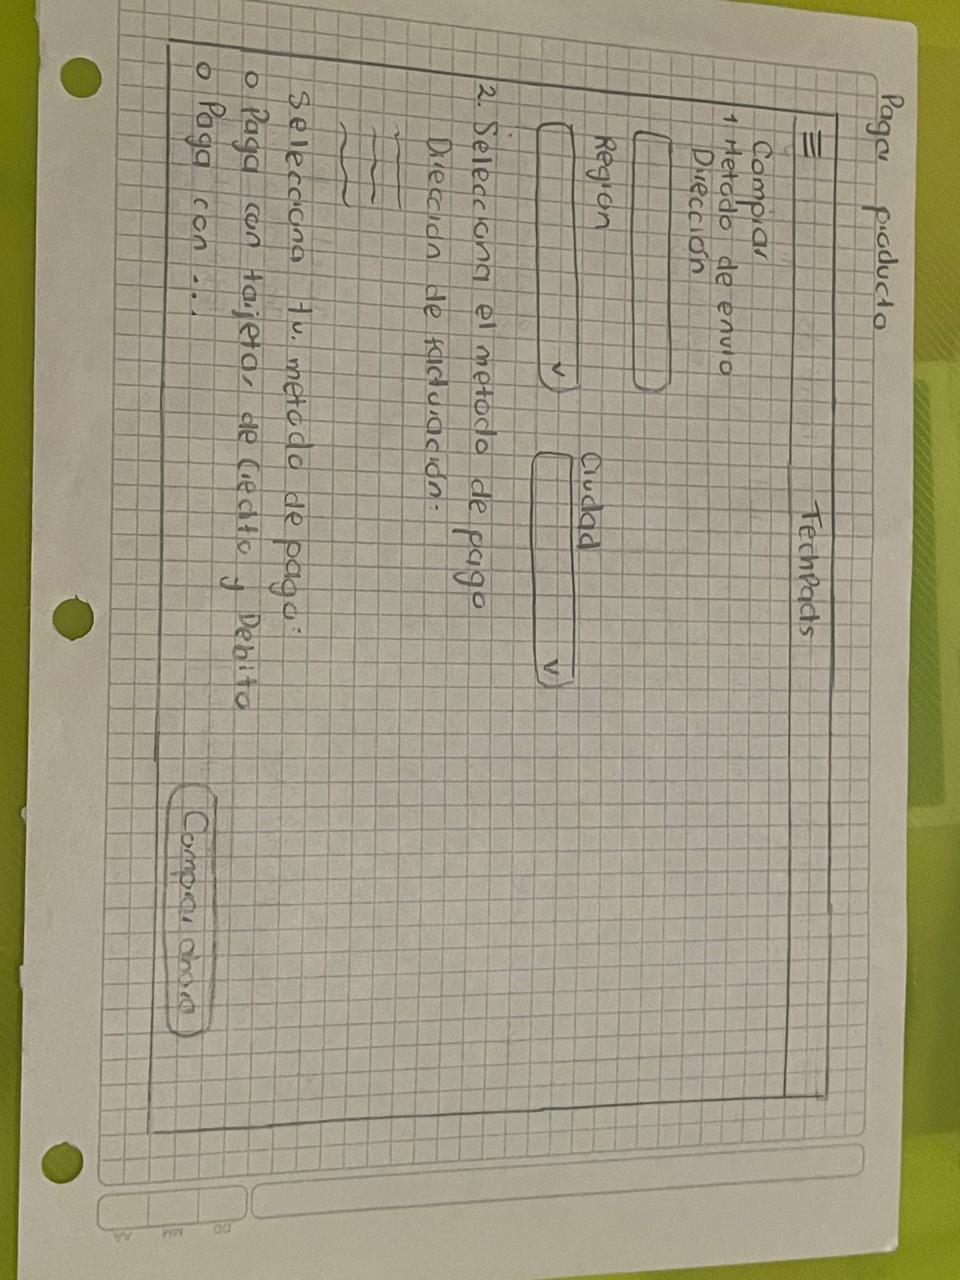 Pagar producto
TechParts
Comprar
1 Metodo de envio
Dirección
Región
Ciudad
v
v
2. Selecciona el metodo de pago
Dirección de facturación:
Selecciona tu metodo de pago:
o Paga con tarjeta, de Credito y Debito
o Paga con ...
Comprar ahora
DD
MM
AA